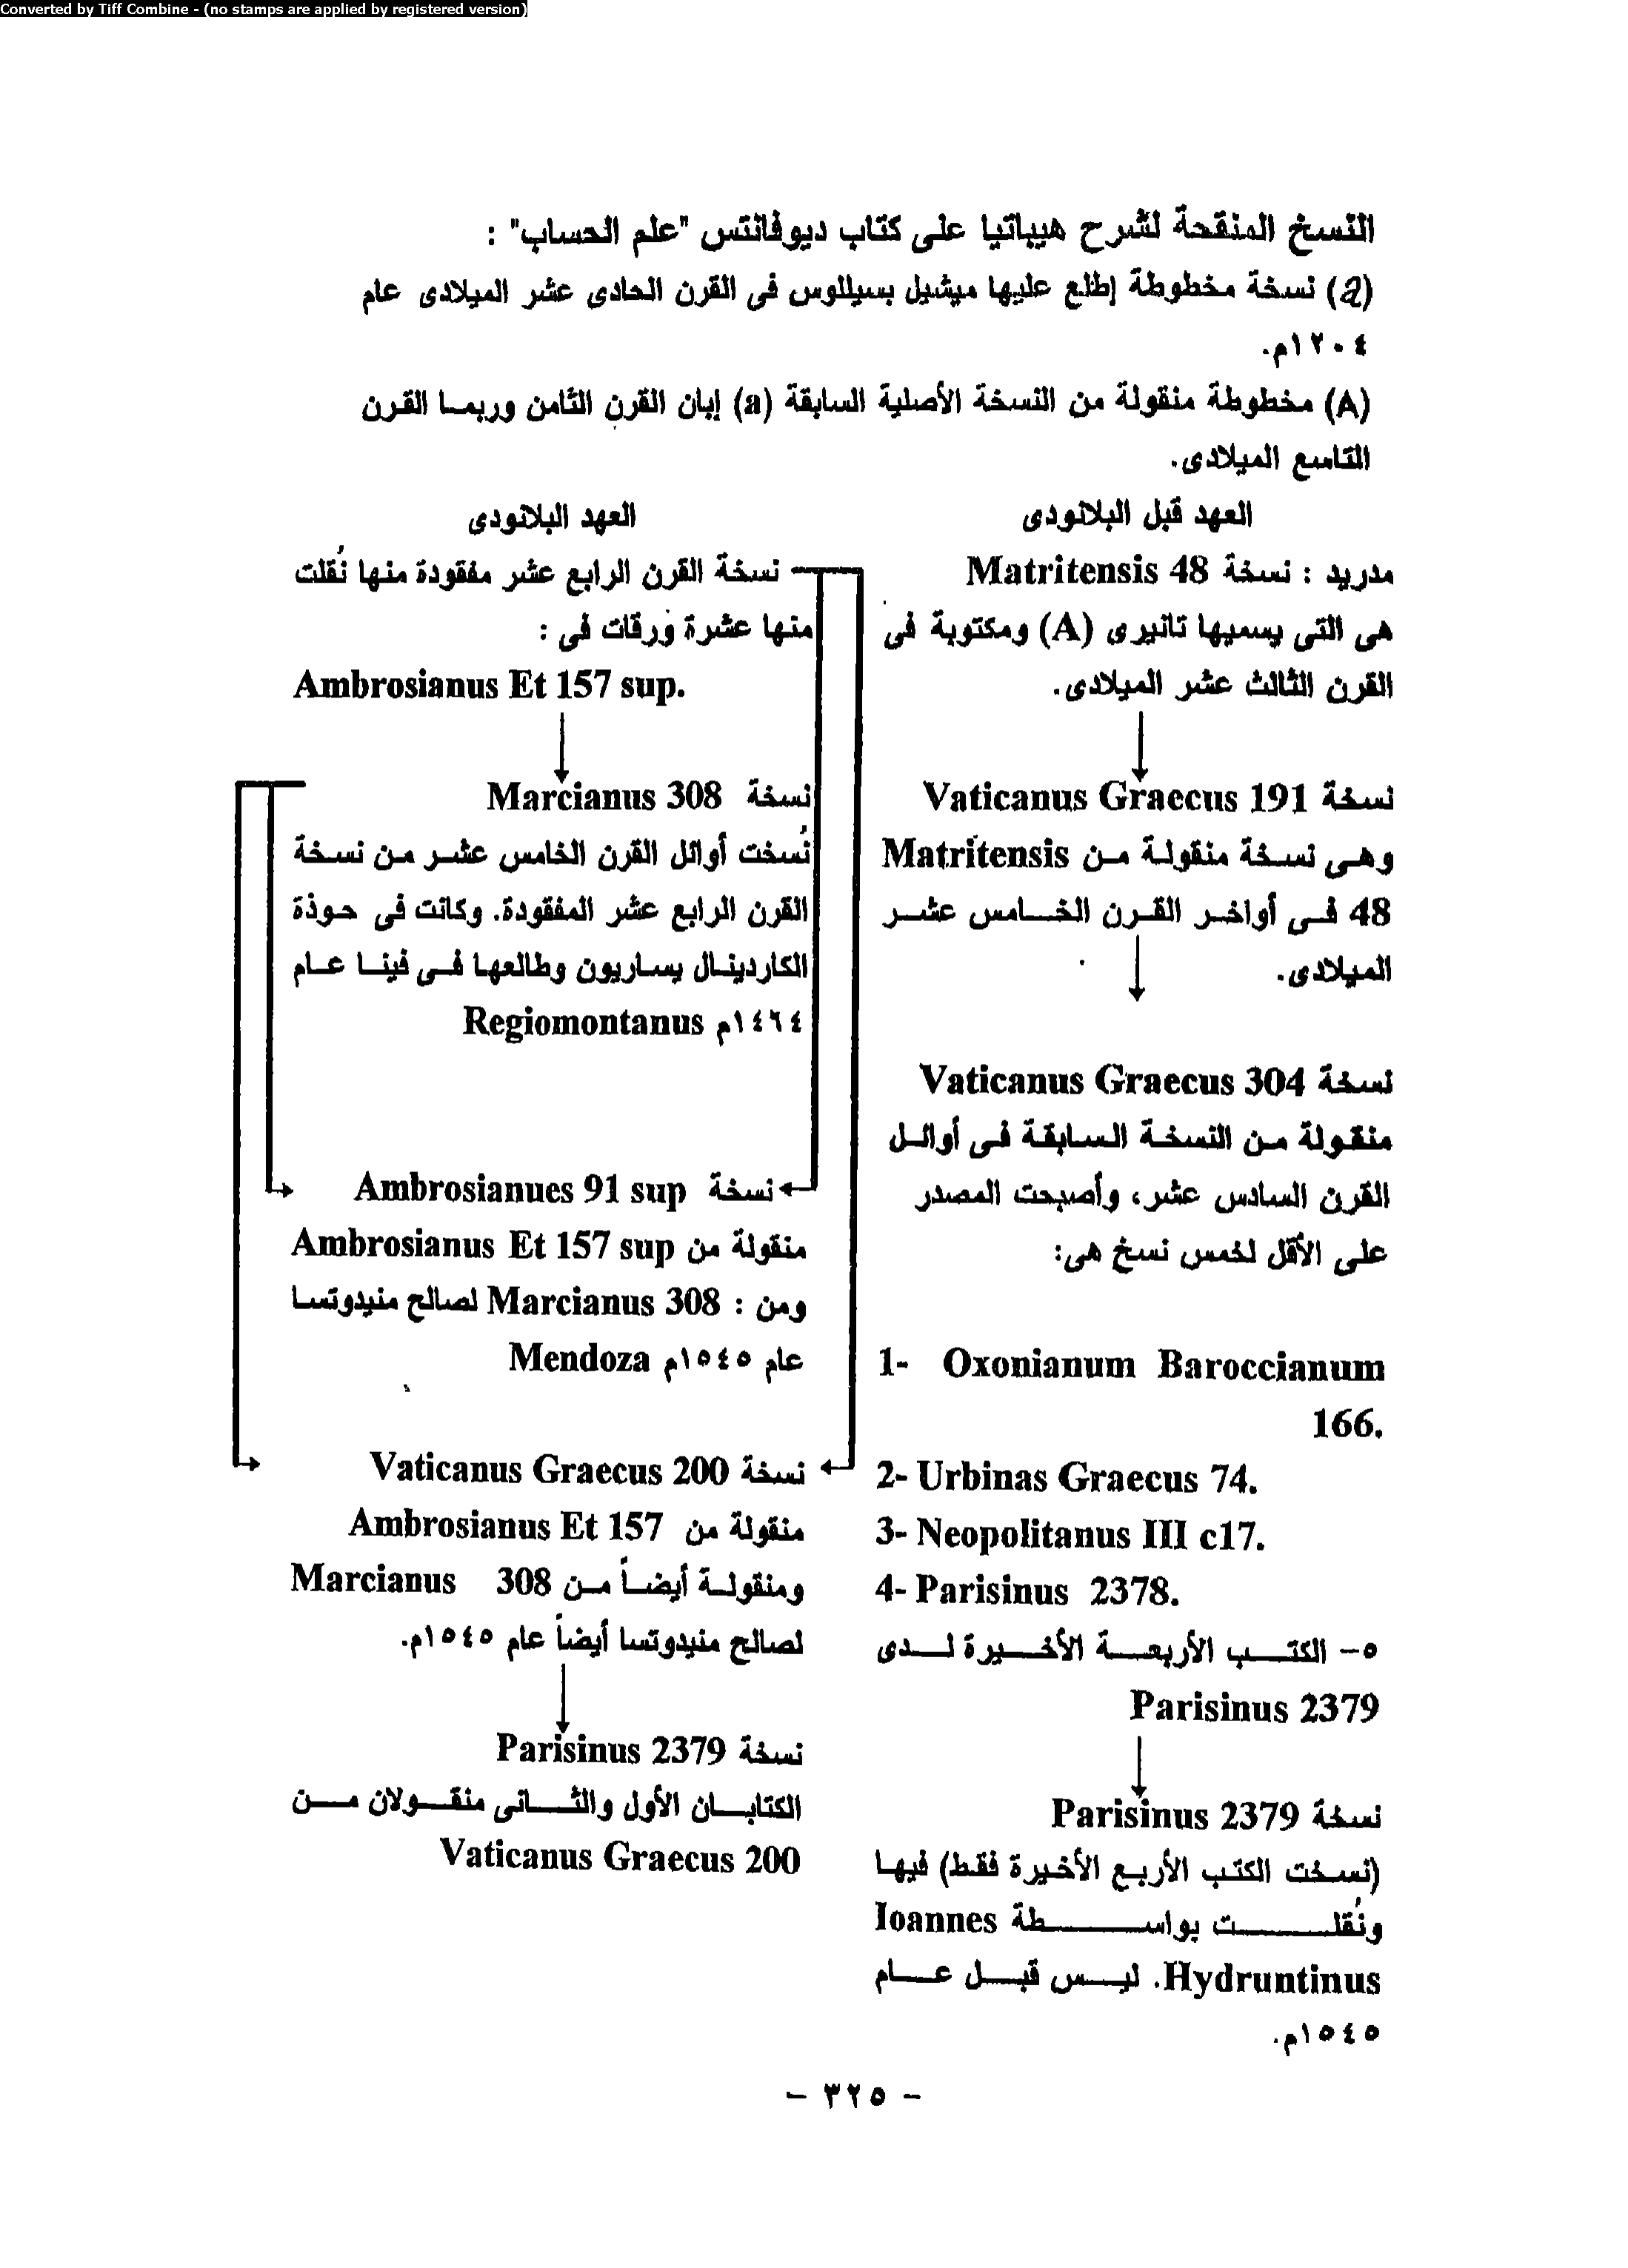 Converted by Tiff Combine - (no stamps are applied by registered version)
النسخ المنقحة لشرح هيباتيا على كتاب ديوفانتس "علم الحساب" :
(a) نسخة مخطوطة إطلع عليها ميشيل بسيللوس فى القرن الحادى عشر الميلادى عام
١٢٠٤م.
(A) مخطوطة منقولة من النسخة الأصلية السابقة (a) إبان القرن الثامن وربما القرن
التاسع الميلادى.
العهد قبل البلانودى
مدريد : نسخة Matritensis 48
هى التى يسميها تانيرى (A) ومكتوبة فى
القرن الثالث عشر الميلادى.
نسخة Vaticanus Graecus 191
وهى نسخة منقولة من Matritensis
48 فى أواخر القرن الخامس عشر
الميلادى.
نسخة Vaticanus Graecus 304
منقولة من النسخة السابقة فى أوائل
القرن السادس عشر، وأصبحت المصدر
على الأقل لخمس نسخ هى:
1- Oxonianum Baroccianum
166.
2- Urbinas Graecus 74.
3- Neopolitanus III c17.
4- Parisinus 2378.
٥- الكتب الأربعة الأخيرة لدى
Parisinus 2379
نسخة Parisinus 2379
(نسخت الكتب الأربع الأخيرة فقط) فيها
ونُقلت بواسطة Ioannes
Hydruntinus. ليس قبل عام
١٥٤٥م.
العهد البلانودى
نسخة القرن الرابع عشر مفقودة منها نُقلت
منها عشرة ورقات فى :
Ambrosianus Et 157 sup.
نسخة Marcianus 308
نُسخت أوائل القرن الخامس عشر من نسخة
القرن الرابع عشر المفقودة. وكانت فى حوذة
الكاردينال بساريون وطالعها فى فينا عام
١٤٦٤م Regiomontanus
نسخة Ambrosianues 91 sup
منقولة من Ambrosianus Et 157 sup
ومن : Marcianus 308 لصالح منيدوتسا
عام ١٥٤٥م Mendoza
نسخة Vaticanus Graecus 200
منقولة من Ambrosianus Et 157
ومنقولة أيضاً من Marcianus 308
لصالح منيدوتسا أيضاً عام ١٥٤٥م.
نسخة Parisinus 2379
الكتابان الأول والثانى منقولان من
Vaticanus Graecus 200
- ٣٢٥ -